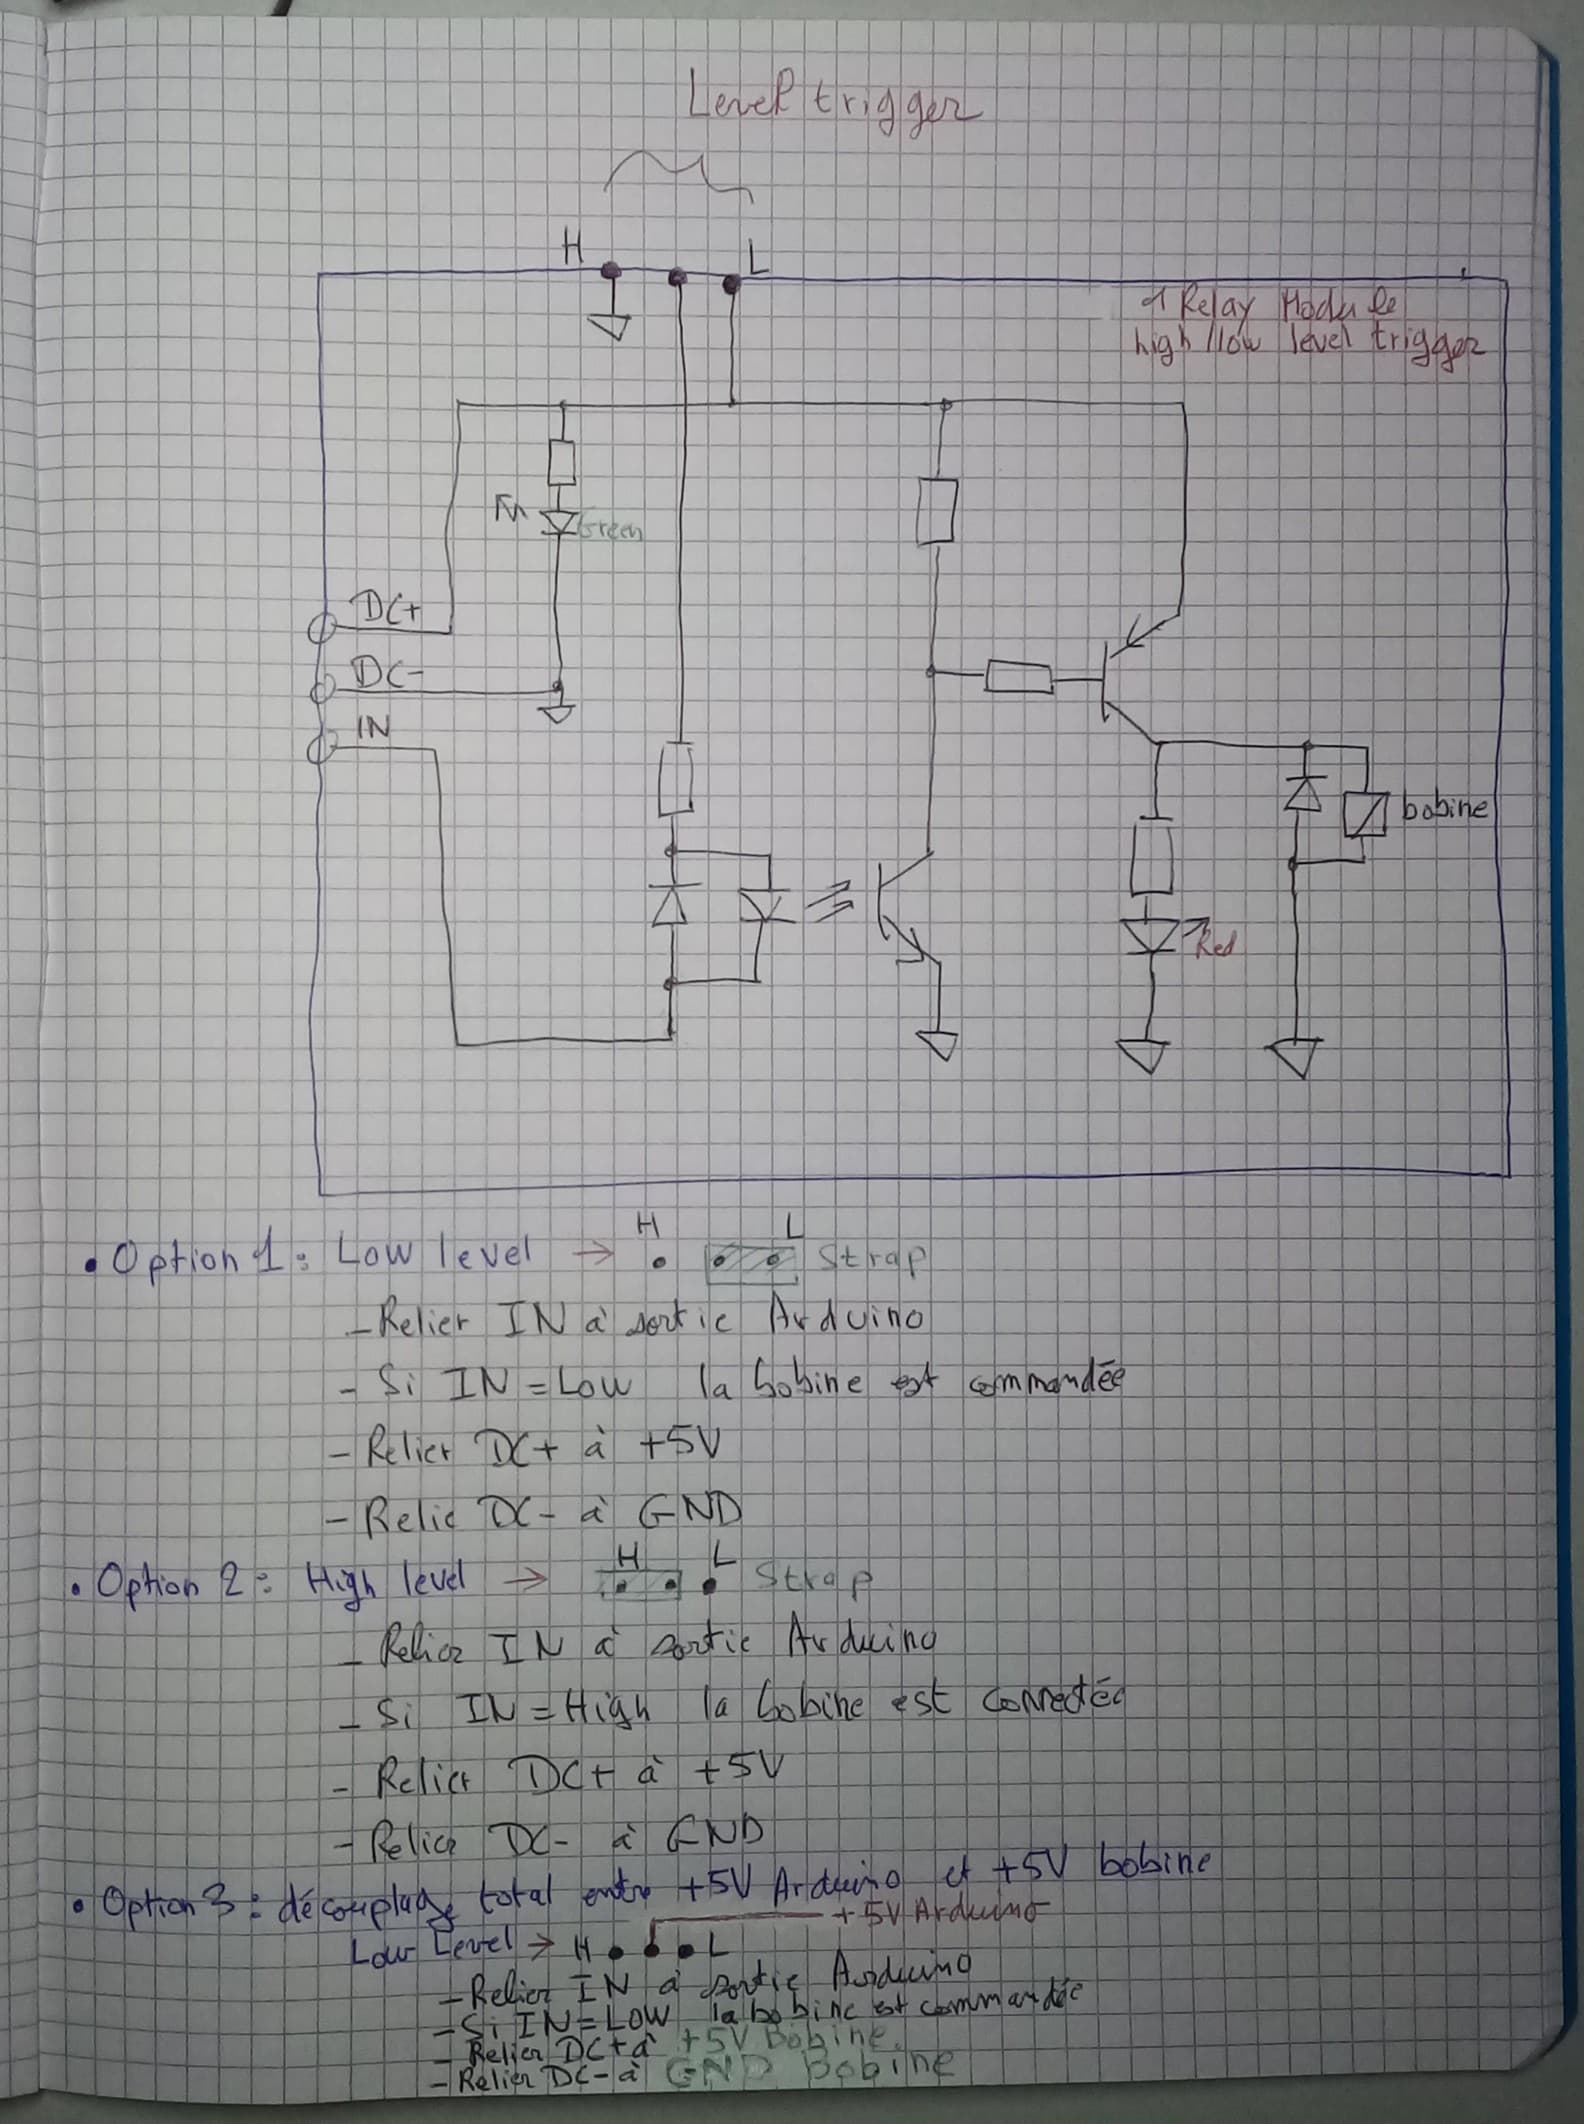 Level trigger
H
L
1 Relay Module
high/low level trigger
Green
DC+
DC-
IN
bobine
Red
• Option 1: Low level → H L Strap
- Relier IN à sortie Arduino
- Si IN = Low la bobine est commandée
- Relier DC+ à +5V
- Relie DC- à GND
• Option 2: High level → H L Strap
- Relier IN à sortie Arduino
- Si IN = High la bobine est connectée
- Relier DC+ à +5V
- Relier DC- à GND
• Option 3: découplage total entre +5V Arduino et +5V bobine
+5V Arduino
Low Level → H L
- Relier IN à sortie Arduino
- Si IN = LOW la bobine est commandée
- Relier DC+ à +5V Bobine.
- Relier DC- à GND Bobine